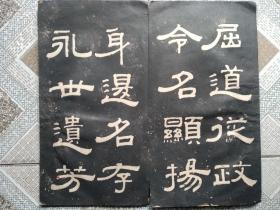 屈道從政
令名顯揚
身遐名存
永世遺芳